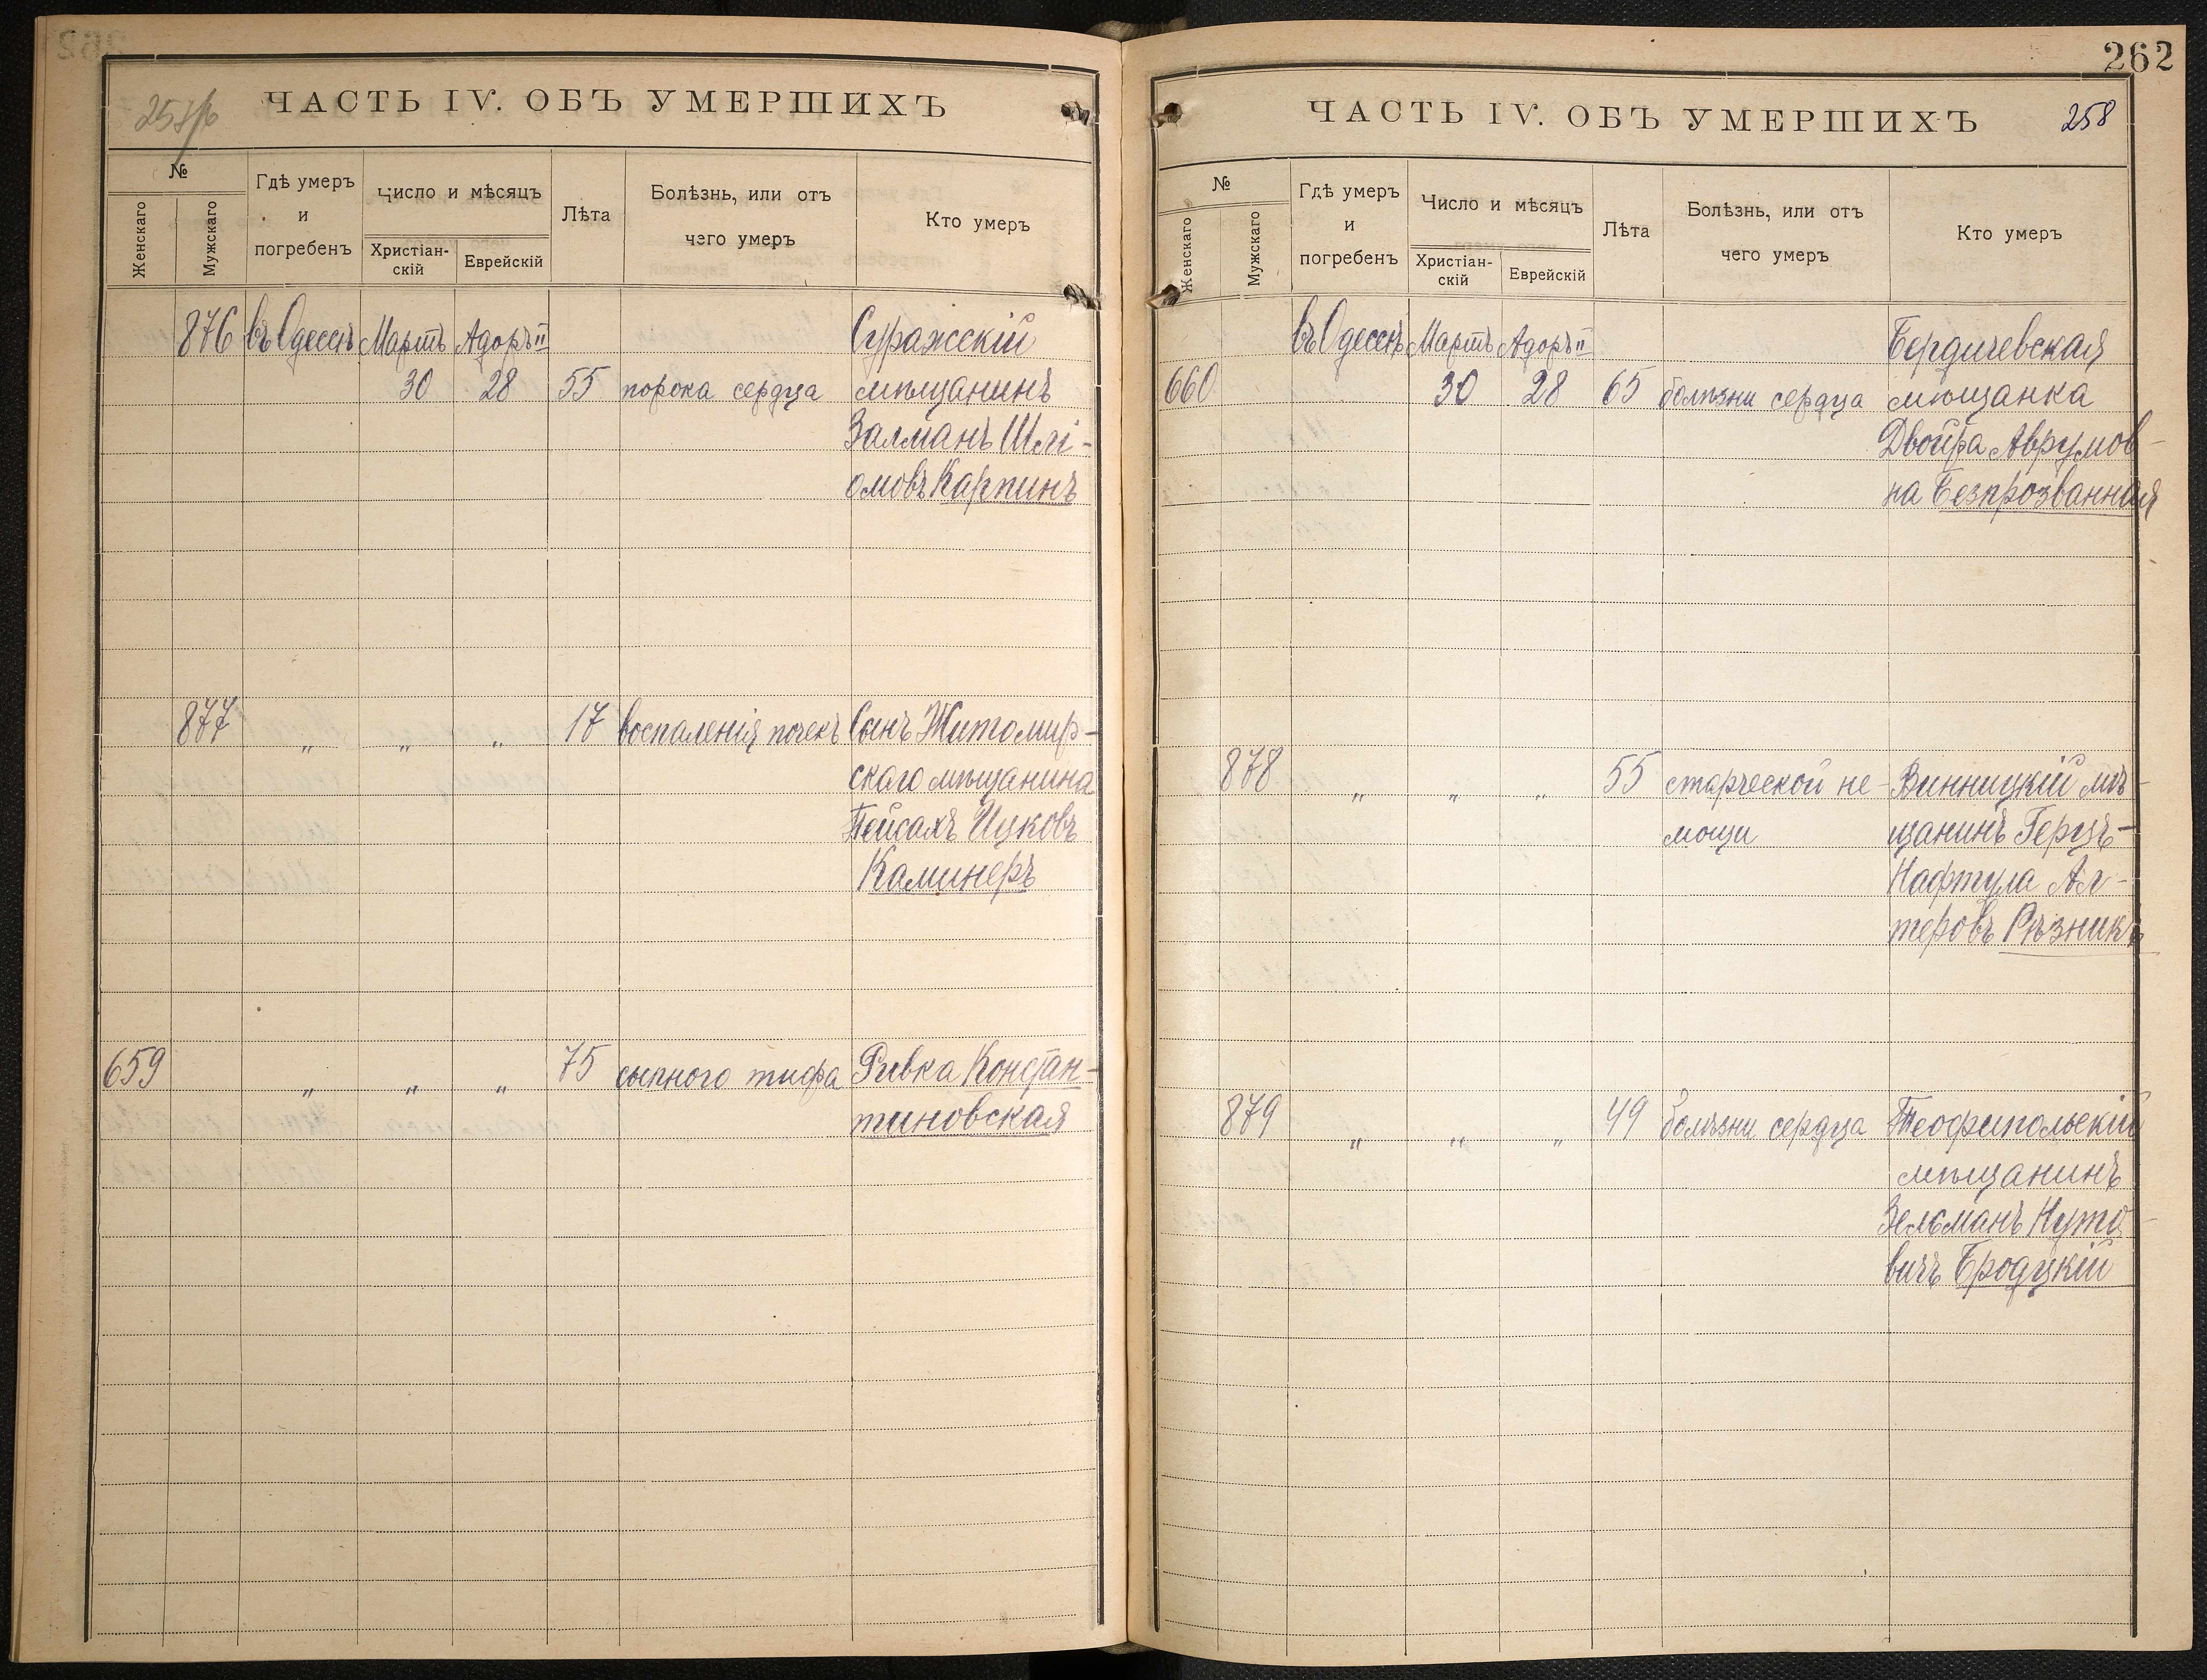 ЧАСТЬ IV. ОБЪ УМЕРШИХЪ
№
Женскаго
Мужскаго
Гдѣ умеръ
и
погребенъ
Число и мѣсяцъ
Христіан-
скій
Еврейскій
Лѣта
Болѣзнь, или отъ
чего умеръ
Кто умеръ
876 въ Одессѣ Мартъ Адоръ II Суражскій
30 28 55 порока сердца мѣщанинъ
Залманъ Шлі-
омовъ Карпинъ
877 " " " 17 воспаленія почекъ Сынъ Житомир-
скаго мѣщанина
Пейсахъ Ицковъ
Каминеръ
659 " " " 75 сыпного тифа Ривка Констан-
тиновская
262
ЧАСТЬ IV. ОБЪ УМЕРШИХЪ 258
№
Женскаго
Мужскаго
Гдѣ умеръ
и
погребенъ
Число и мѣсяцъ
Христіан-
скій
Еврейскій
Лѣта
Болѣзнь, или отъ
чего умеръ
Кто умеръ
въ Одессѣ Мартъ Адоръ II Бердичевская
660 30 28 65 болѣзни сердца мѣщанка
Двойра Аврумов-
на Безпрозванная
878 " " " 55 старческой не- Винницкій мѣ-
мощи щанинъ Герцъ-
Нафтула Ал-
теровъ Рѣзникъ
879 " " " 49 болѣзни сердца Теофипольскій
мѣщанинъ
Зельманъ Нуто-
вичъ Бродцкій